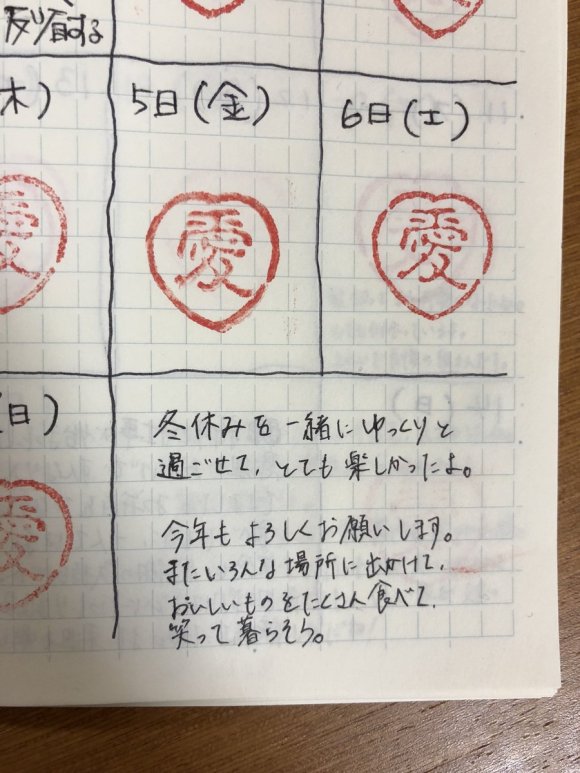 反省する
木)
5日(金)
6日(土)
愛
愛
愛
日)
愛
冬休みを一緒にゆっくりと
過ごせて、とても楽しかったよ。
今年もよろしくお願いします。
またいろんな場所に出かけて、
おいしいものをたくさん食べて、
笑って暮らそう。